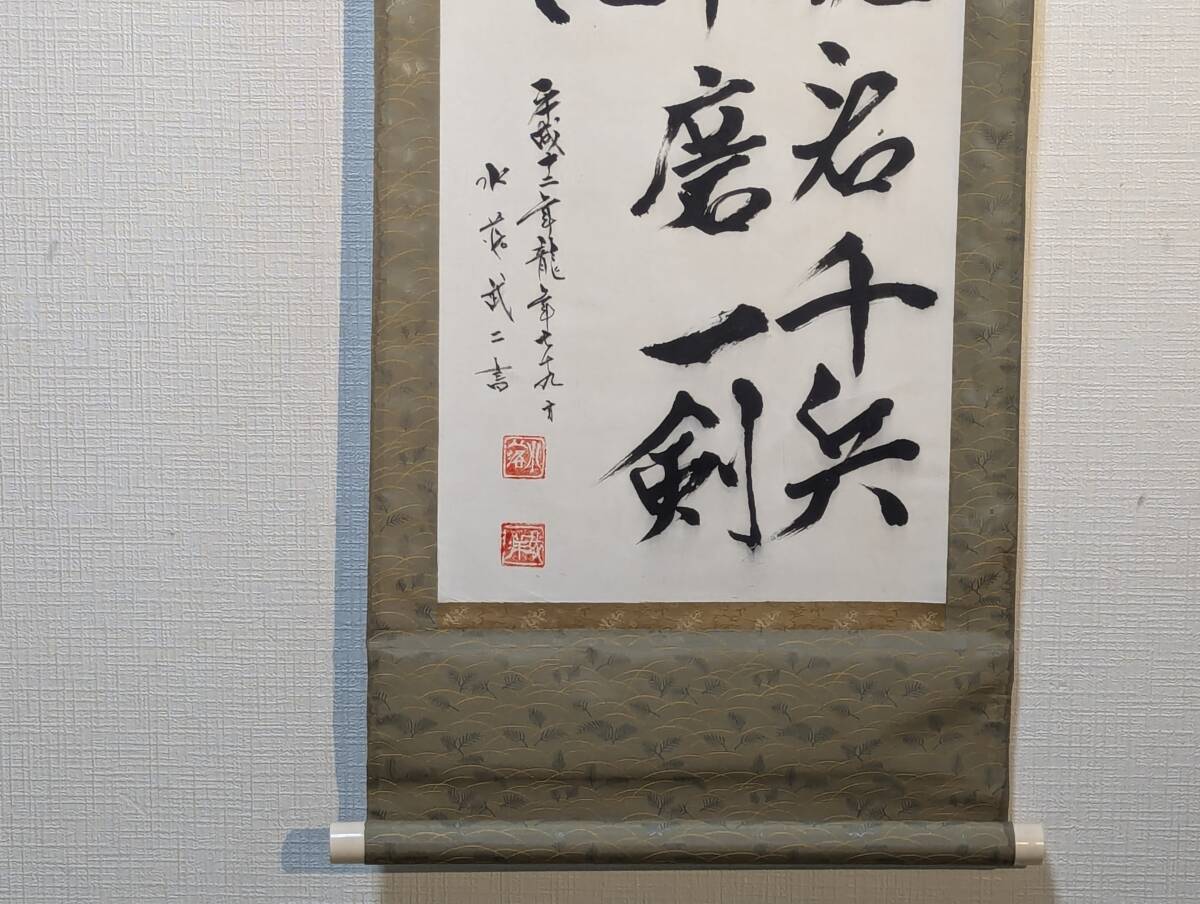 若千兵
磨一剣
平成十二年龍年七十九才
水落武二書
水落